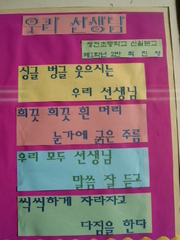 우리 선생님
초등학교
싱글 벙글 웃으시는
우리 선생님
희끗 희끗 흰 머리
눈가에 굵은 주름
우리 모두 선생님
말씀 잘 듣고
씩씩하게 자라자고
다짐을 한다